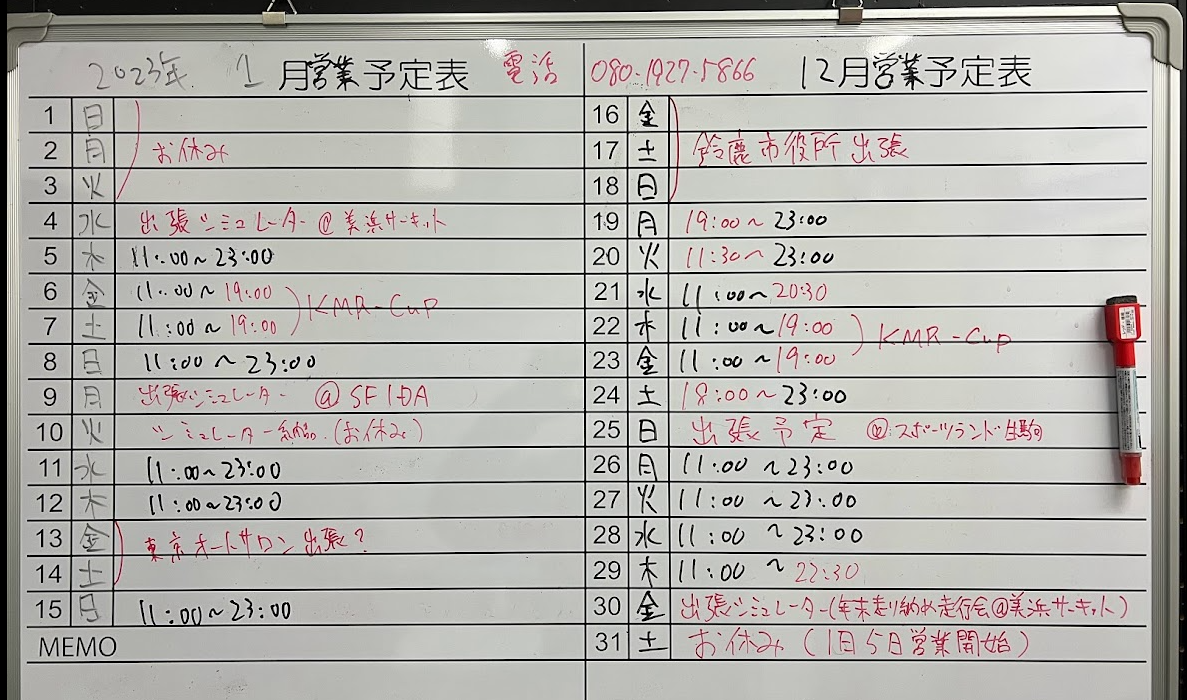 2023年 1月営業予定表 電話
1 日
2 月 お休み
3 火
4 水 出張シミュレーター@美浜サーキット
5 木 11:00~23:00
6 金 11:00~19:00
7 土 11:00~19:00 KMR-Cup
8 日 11:00~23:00
9 月 出張シミュレーター @SFIDA
10 火 シミュレーター納品(お休み)
11 水 11:00~23:00
12 木 11:00~23:00
13 金 東京オートサロン出張?
14 土
15 日 11:00~23:00
MEMO
080-1927-5866 12月営業予定表
16 金
17 土 鈴鹿市役所出張
18 日
19 月 19:00~23:00
20 火 11:30~23:00
21 水 11:00~20:30
22 木 11:00~19:00 KMR-Cup
23 金 11:00~19:00
24 土 18:00~23:00
25 日 出張予定 @スポーツランド生駒
26 月 11:00~23:00
27 火 11:00~23:00
28 水 11:00~23:00
29 木 11:00~22:30
30 金 出張シミュレーター(年末走り納め走行会@美浜サーキット)
31 土 お休み(1月5日営業開始)